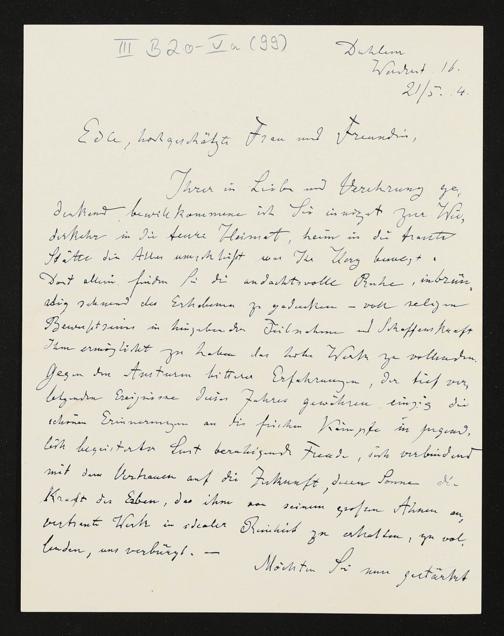 III B 20-Va (99)
Dahlem
16.
21/5. 4.
Edle, hochgeschätzte Frau und Freundin,
Ihrer in Liebe und Verehrung ge,
denkend bewillkommene ich Sie innigst zur Wie,
derkehr in die teure Heimat, heim in die traute
Stätte die Alles umschließt was Ihr Herz bewegt.
Dort allein finden Sie die andachtsvolle Ruhe, inbrün,
stig sehnend des Erhabenen zu gedenken – voll seligen
Bewußtseins in hingebender Teilnahme und Schaffenskraft
Ihm ermöglicht zu haben das hohe Werk zu vollenden.
Gegen den Ansturm bitterer Erfahrungen, der tief ver,
letzenden Ereignisse dieses Jahres gewähren einzig die
schönen Erinnerungen an die frischen Kämpfe in jugend,
lich begeisterter Lust beruhigende Freude, sich verbindend
mit dem Vertrauen auf die Zukunft, deren Sonne die
Kraft des Erben, das ihm von seinem großen Ahnen an,
vertraute Werk in idealer Reinheit zu erhalten, zu vol,
lenden, uns verbürgt. –
Möchten Sie nun gestärkt